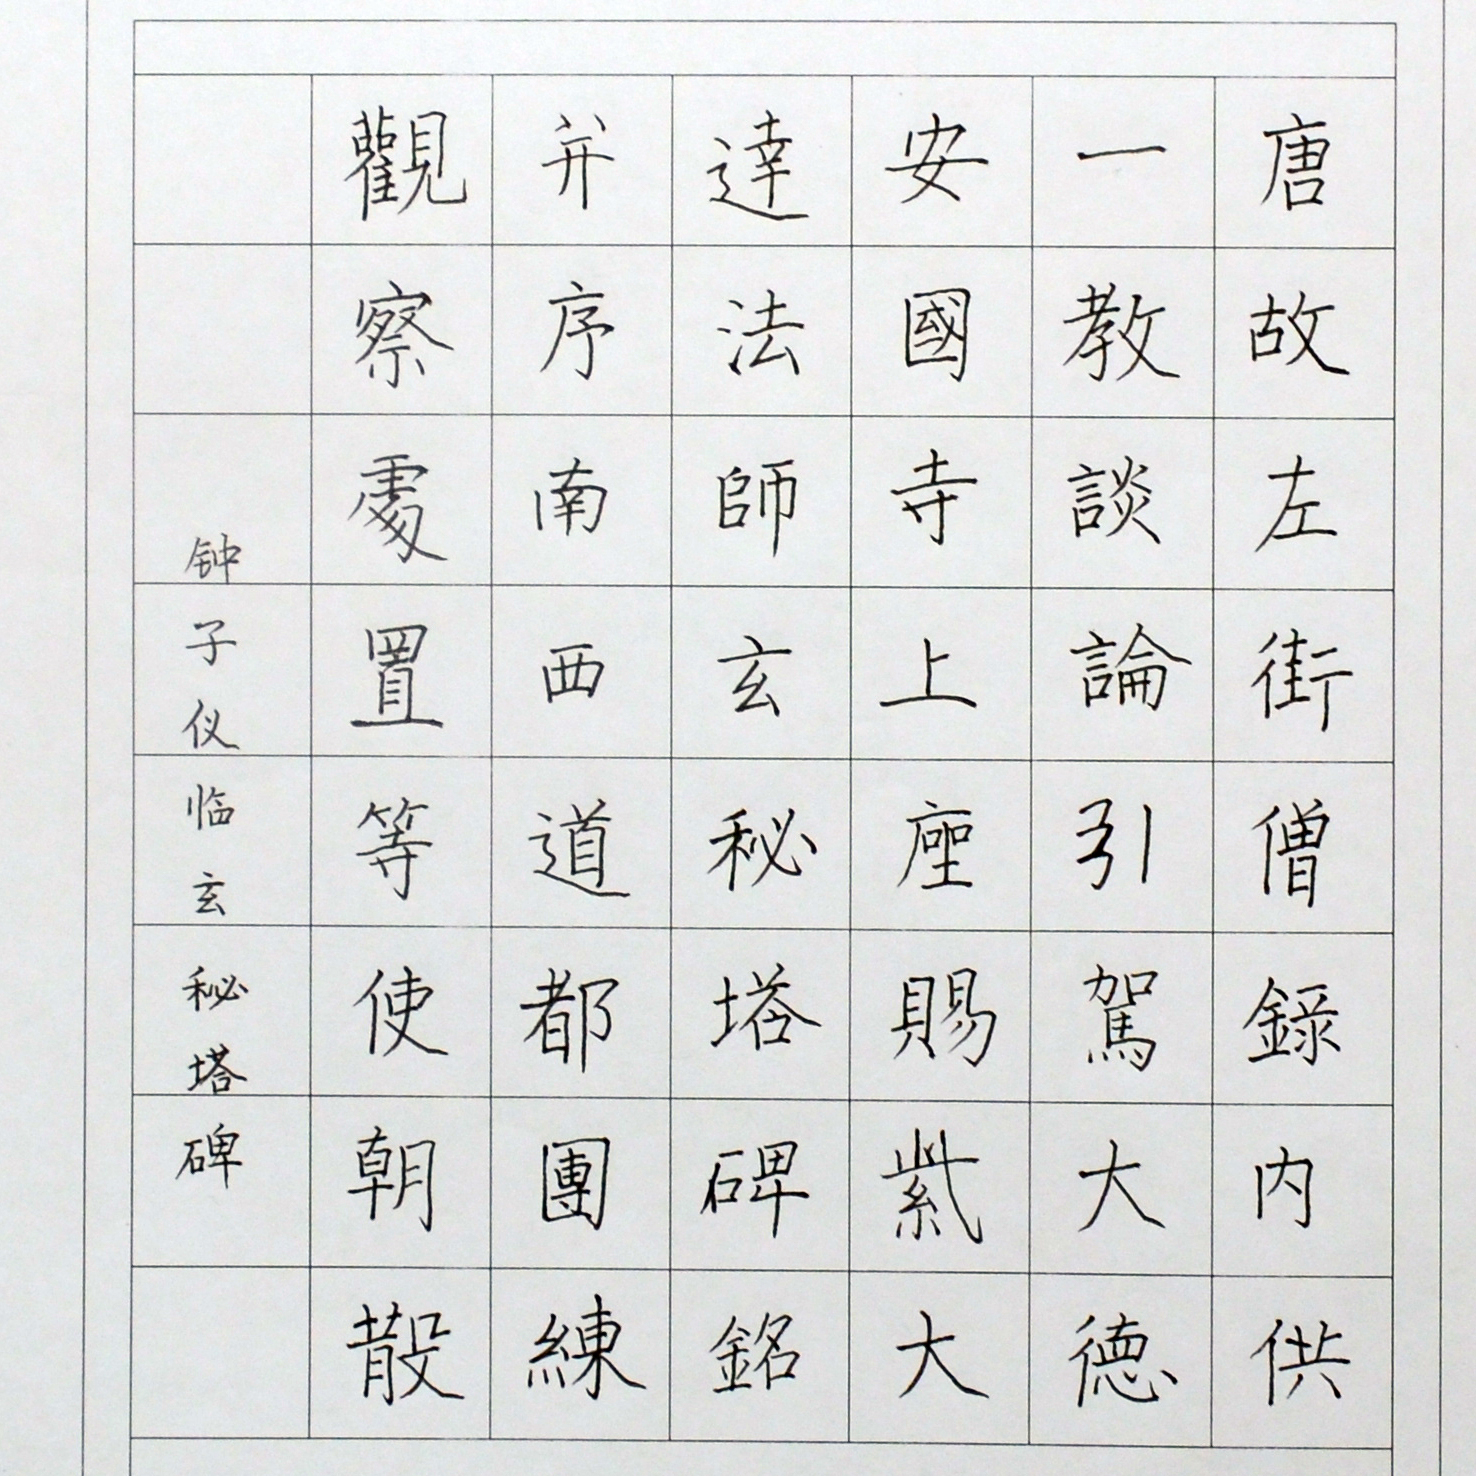 唐故左街僧録内供
一教談論引駕大德
安國寺上座賜紫大
達法師玄秘塔碑銘
并序南西道都團練
觀察處置等使朝散
钟子仪临玄秘塔碑